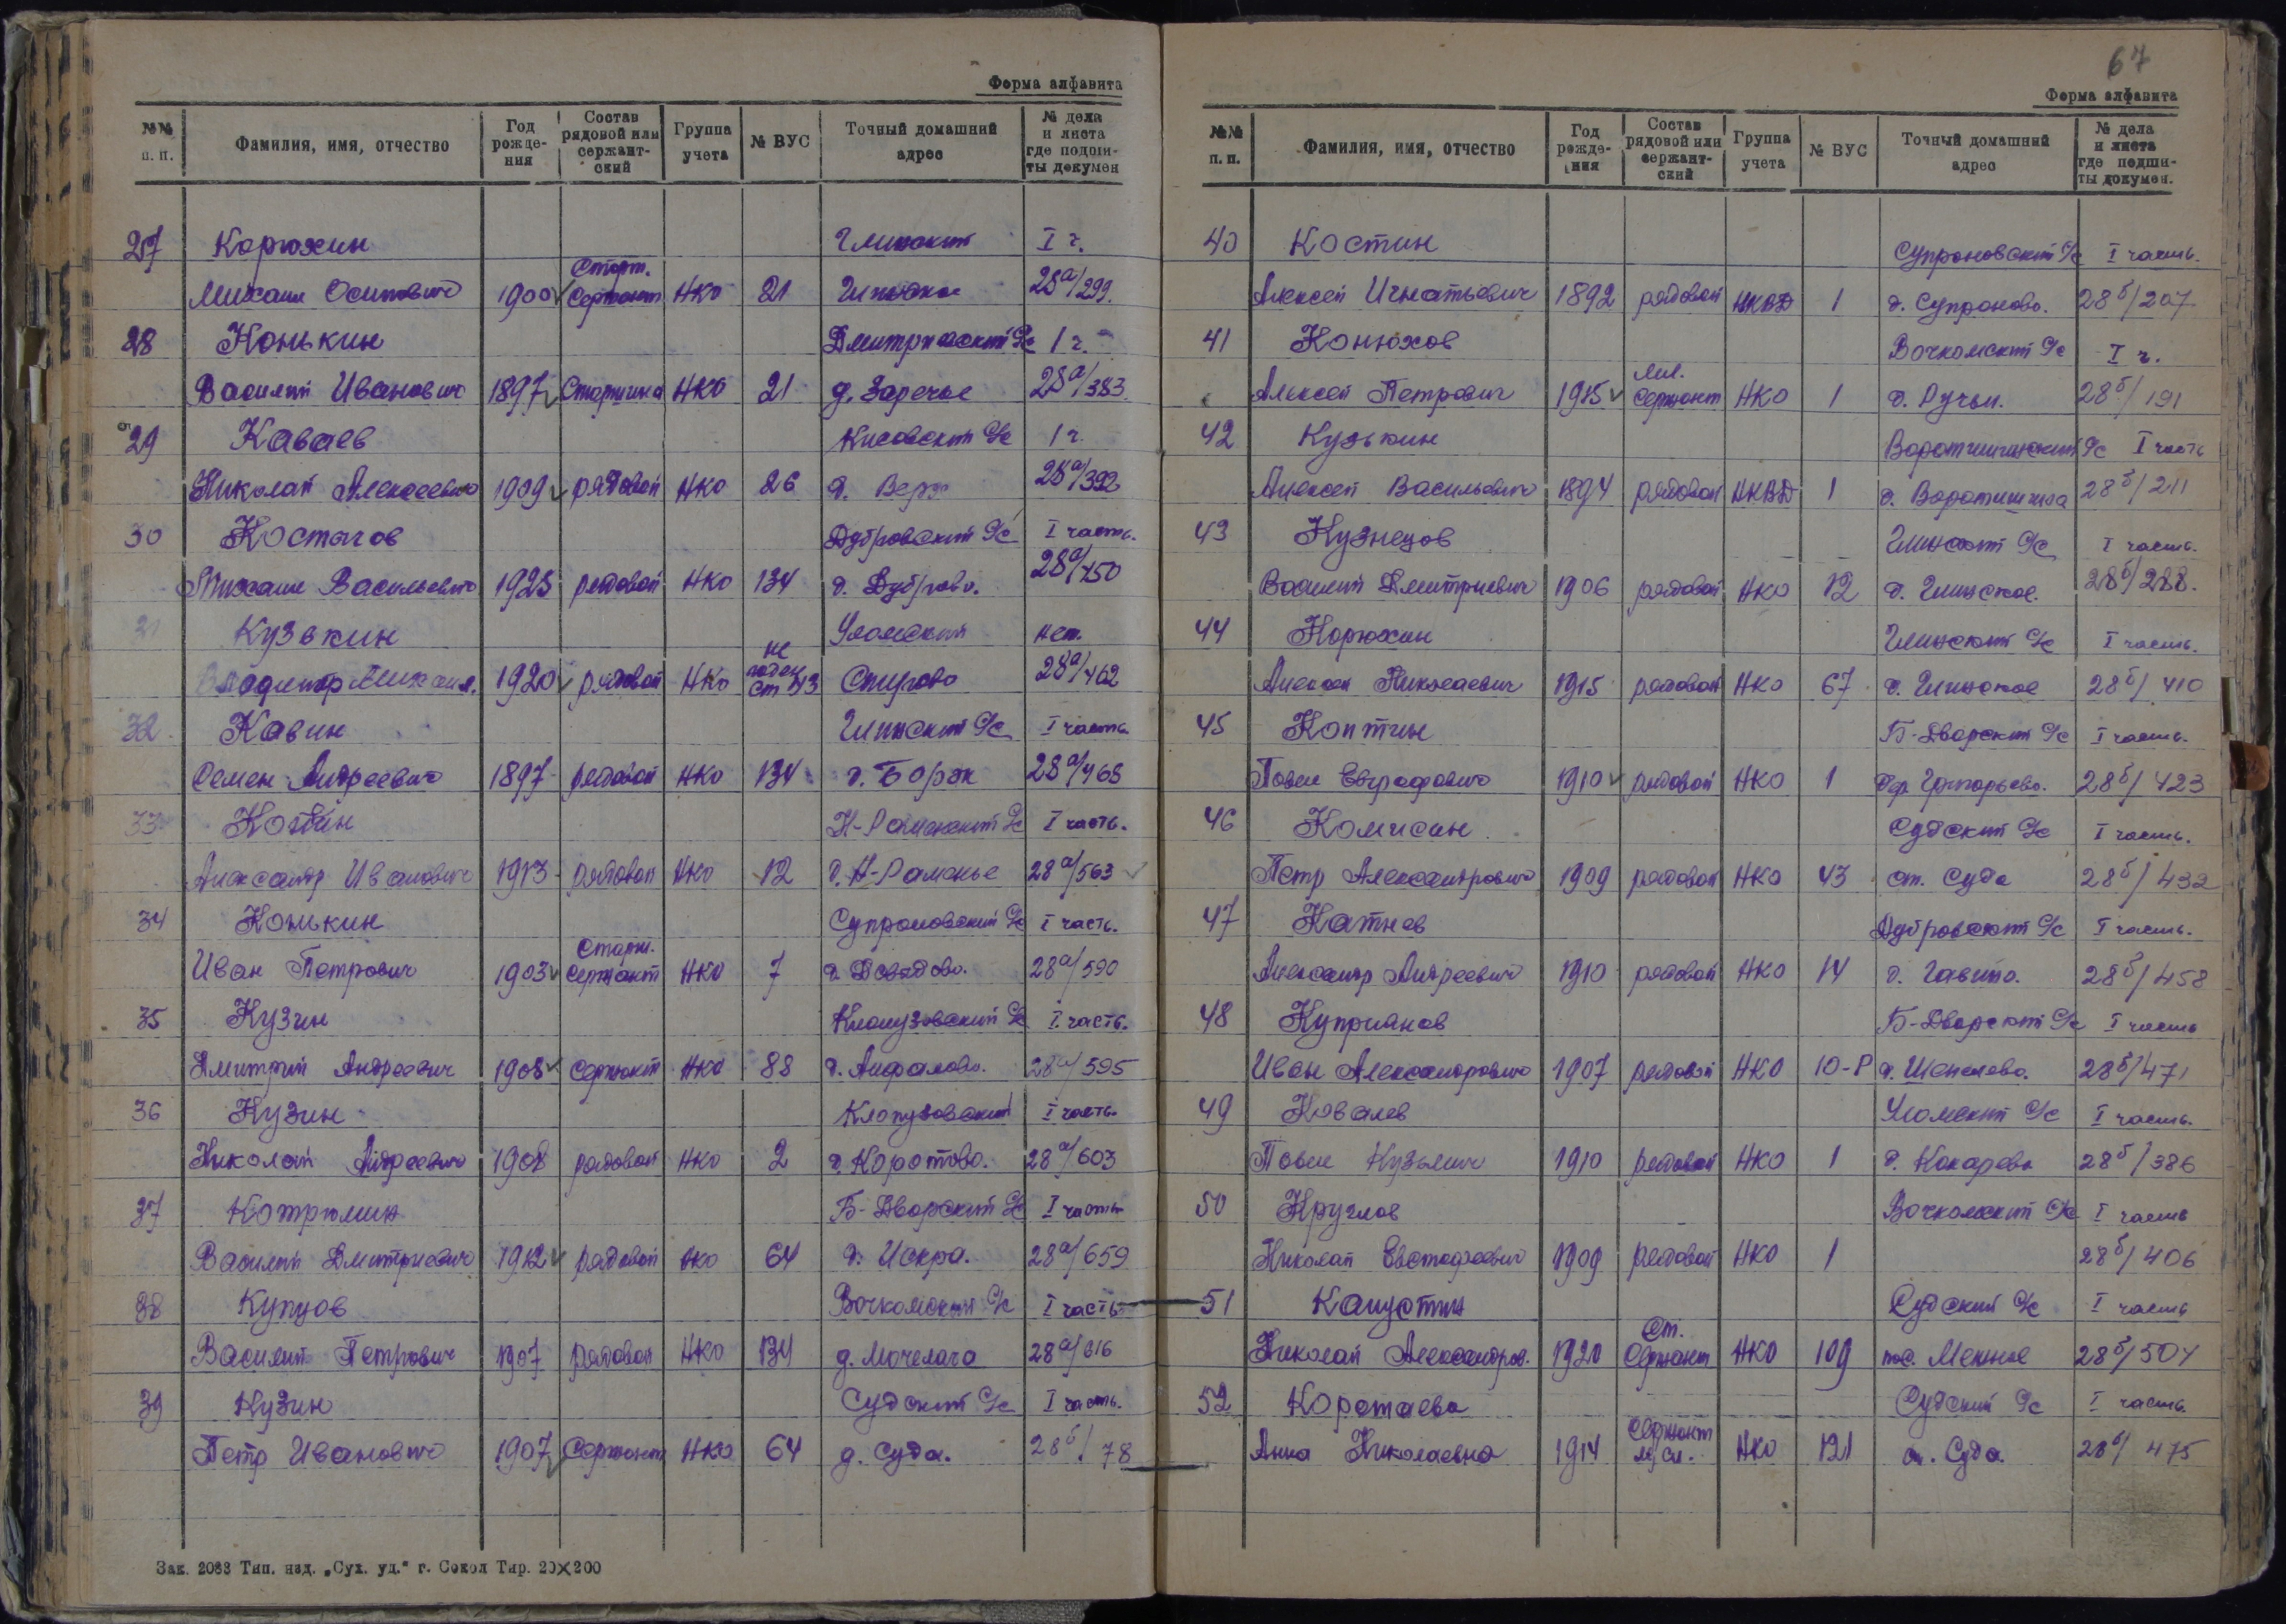 Форма алфавита
№№ п. п. Фамилия, имя, отчество Год рожде- ния Состав рядовой или сержант- ский Группа учета № ВУС Точный домашний адрес № дела и листа где подши- ты докумен
27 Корюхин Глинский I ч.
Михаил Осипович 1900 Старш. Сержант НКО 21 Глинское 28а/299.
28 Конькин Дмитриевский С/с 1 ч.
Василий Иванович 1897 Старшина НКО 21 д. Заречье 28а/383.
29 Каваев Кисовский С/с 1 ч.
Николай Алексеевич 1909 рядовой НКО 26 д. Верх 28а/392
30 Костыгов Дубровский С/с I часть.
Михаил Васильевич 1925 рядовой НКО 134 д. Дуброво. 28а/450
31 Кузькин Уломский нет.
Владимир Михаил. 1920 рядовой НКО не годен ст 43 Стугово 28а/462
32. Кавин Глинский С/с I часть.
Семен Андреевич 1897 рядовой НКО 134 д. Борок 28а/468
33 Котин Н-Раменский С/с I часть.
Александр Иванович 1913 рядовой НКО 12 д. Н-Раменье 28а/563
34 Конькин Супроновский С/с I часть.
Иван Петрович 1903 Старш. сержант НКО 7 д. Давыдово. 28а/590
35 Кузин Клопузовский С/с I часть.
Дмитрий Андреевич 1908 Сержант НКО 88 д. Анфалово. 28а/595
36 Кузин Клопузовский I часть.
Николай Андреевич 1908 рядовой НКО 2 д. Коротово. 28а/603
37 Котрюмин Б-Дворский С/с I часть
Василий Дмитриевич 1912 рядовой НКО 64 д. Искра. 28а/659
38 Купцов Вочкомский С/с I часть
Василий Петрович 1907 рядовой НКО 134 д. 28а/616
39 Кузин Судский С/с I часть.
Петр Иванович 1907 Сержант НКО 64 д. Суда. 28б/78
Зак. 2088 Тип. изд. „Сух. уд.“ г. Сокол Тир. 20×200
67
Форма алфавита
№№ п. п. Фамилия, имя, отчество Год рожде- ния Состав рядовой или сержант- ский Группа учета № ВУС Точный домашний адрес № дела и листа где подши- ты докумен.
40 Костин Супроновский С/с I часть.
Алексей Игнатьевич 1892 рядовой НКВД 1 д. Супроново. 28б/207
41 Конюхов Вочкомский С/с I ч.
Алексей Петрович 1915 Мл. Сержант НКО 1 д. Ручьи. 28б/191
42 Кузькин Воротишинский С/с I часть
Алексей Васильевич 1894 рядовой НКВД 1 д. Воротишина 28б/211
43 Кузнецов Глинский С/с I часть.
Василий Дмитриевич 1906 рядовой НКО 12 д. Глинское. 28б/288.
44 Корюхин Глинский С/с I часть.
Алексей Николаевич 1915 рядовой НКО 67 д. Глинское 28б/410
45 Коптин Б-Дворский С/с I часть.
Павел Евграфович 1910 рядовой НКО 1 дер Григорьево. 28б/423
46 Комисин Судский С/с I часть.
Петр Александрович 1909 рядовой НКО 43 ст. Суда 28б/432
47 Катнев Дубровский С/с I часть.
Александр Андреевич 1910 рядовой НКО 14 д. Гавино. 28б/458
48 Куприянов Б-Дворский С/с I часть
Иван Александрович 1907 рядовой НКО 10-Р д. Шепелево. 28б/471
49 Ковалев Уломский С/с I часть.
Павел Кузьмич 1910 рядовой НКО 1 д. Кокарево 28б/386
50 Круглов Вочкомский С/с I часть
Николай Евстафеевич 1909 рядовой НКО 1 28б/406
51 Капустин Судский С/с I часть
Николай Александров. 1920 Ст. Сержант НКО 109 пос. 28б/504
52 Коротаева Судский С/с I часть.
Анна Николаевна 1914 Сержант м/сл. НКО 121 ст. Суда. 28б/475